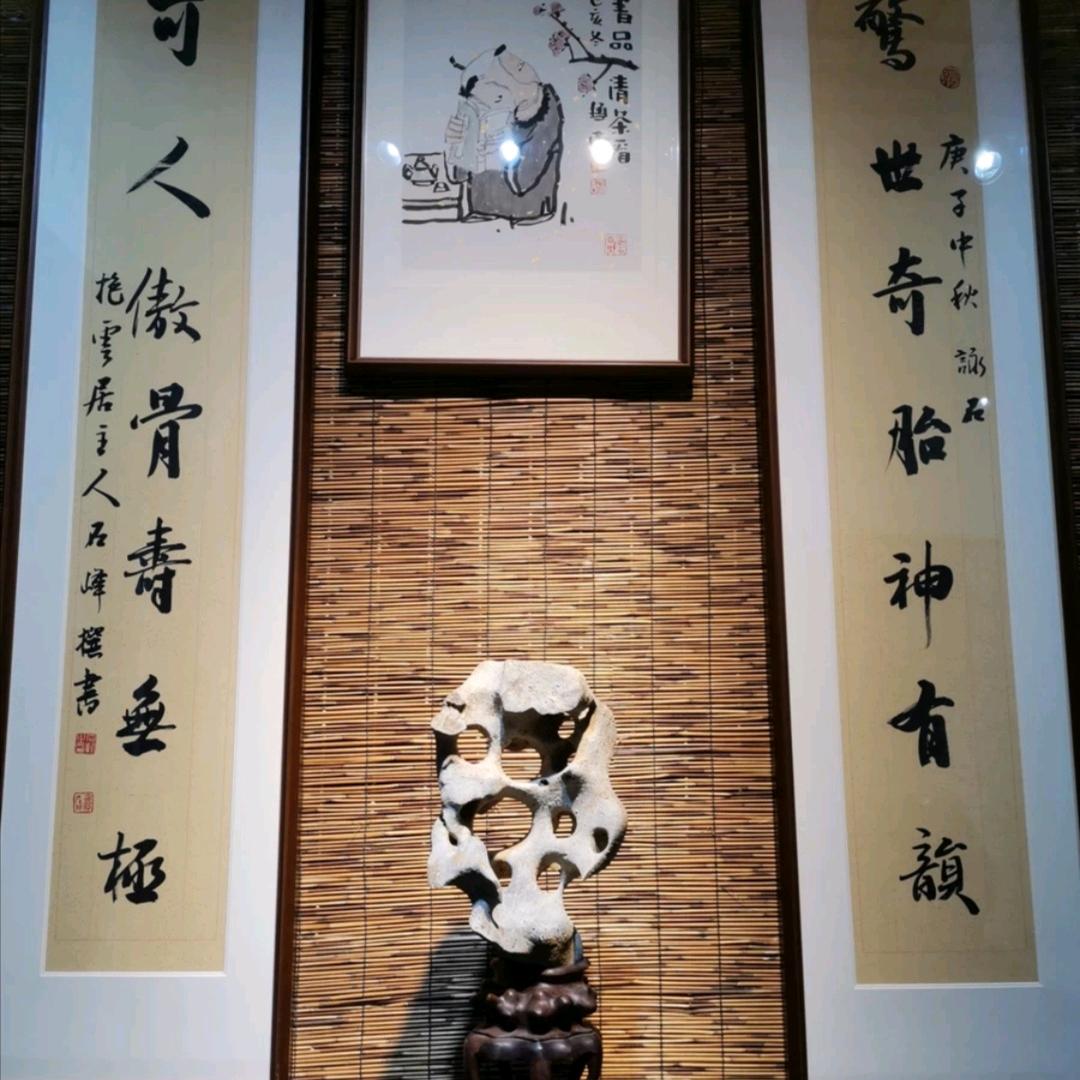 驚世奇胎神有韻
庚子中秋 詠石
書品清茶
亥冬
可人傲骨壽無極
抱雲居主人石峰撰書